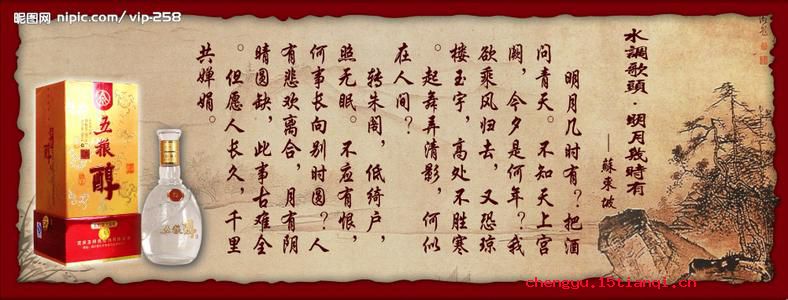 昵图网 nipic.com/vip-258
水調歌頭·明月幾時有
——蘇東坡
明月几时有？把酒
问青天。不知天上宫
阙，今夕是何年？我
欲乘风归去，又恐琼
楼玉宇，高处不胜寒
。起舞弄清影，何似
在人间？
转朱阁，低绮户，
照无眠。不应有恨，
何事长向别时圆？人
有悲欢离合，月有阴
晴圆缺，此事古难全
。但愿人长久，千里
共婵娟。
五粮醇
五粮醇
chenggu.15tianqi.cn